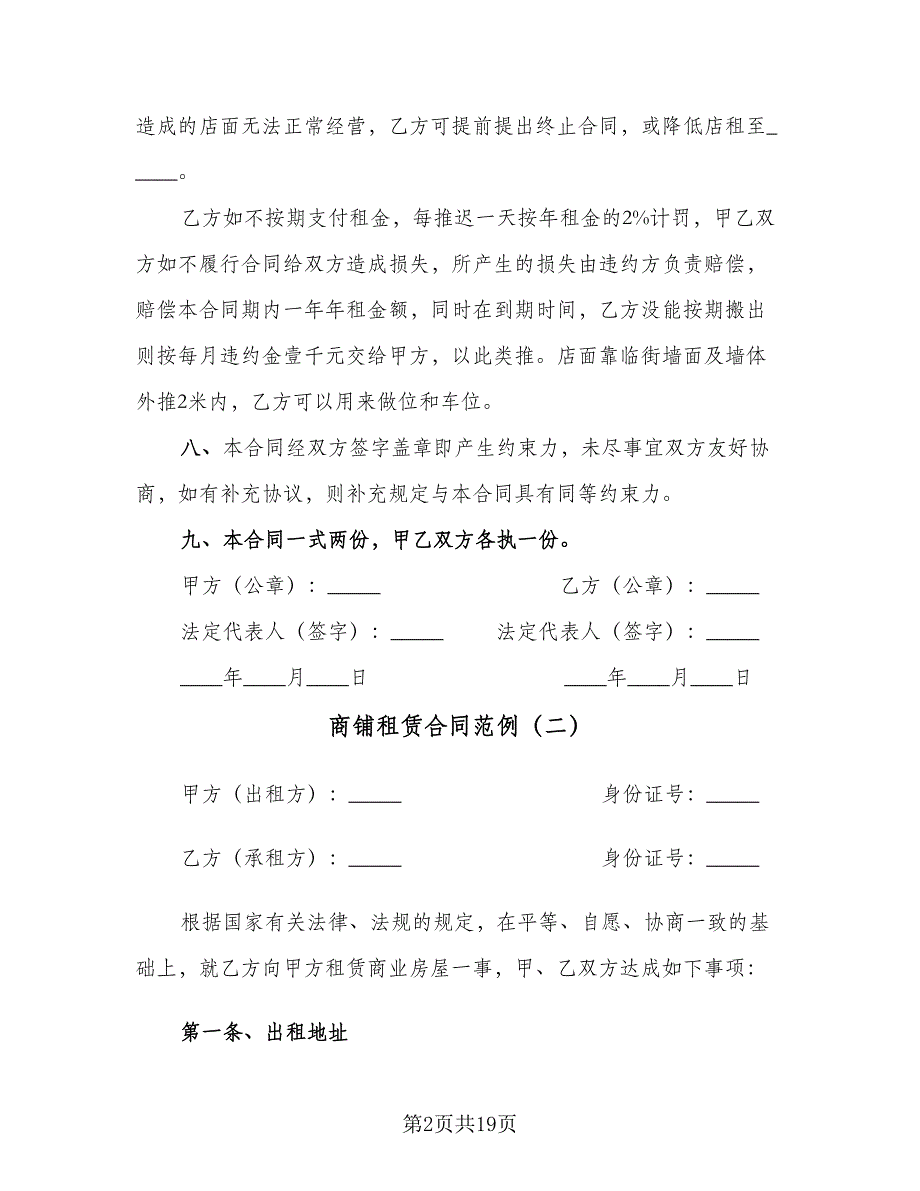 造成的店面无法正常经营，乙方可提前提出终止合同，或降低店租至_
____。
乙方如不按期支付租金，每推迟一天按年租金的2%计罚，甲乙双
方如不履行合同给双方造成损失，所产生的损失由违约方负责赔偿，
赔偿本合同期内一年年租金额，同时在到期时间，乙方没能按期搬出
则按每月违约金壹千元交给甲方，以此类推。店面靠临街墙面及墙体
外推2米内，乙方可以用来做位和车位。
八、本合同经双方签字盖章即产生约束力，未尽事宜双方友好协
商，如有补充协议，则补充规定与本合同具有同等约束力。
九、本合同一式两份，甲乙双方各执一份。
甲方（公章）：_____ 乙方（公章）：_____
法定代表人（签字）：_____ 法定代表人（签字）：_____
____年____月____日 ____年____月____日
商铺租赁合同范例（二）
甲方（出租方）：_____ 身份证号：_____
乙方（承租方）：_____ 身份证号：_____
根据国家有关法律、法规的规定，在平等、自愿、协商一致的基
础上，就乙方向甲方租赁商业房屋一事，甲、乙双方达成如下事项：
第一条、出租地址
第2页共19页